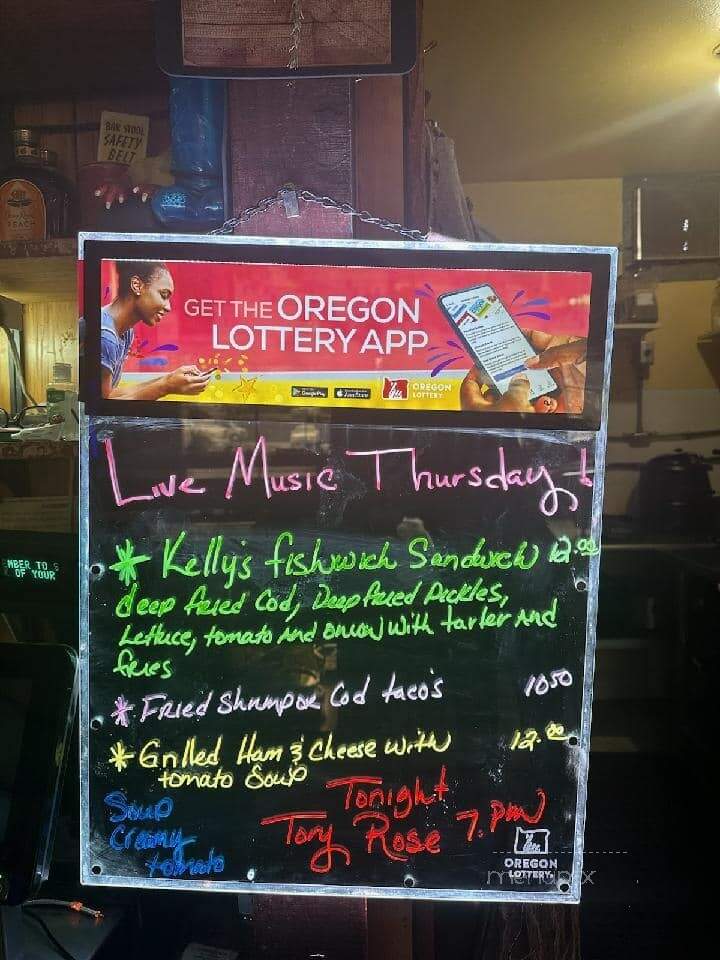 BAR STOOL
SAFETY
BELT
PEACH
GET THE OREGON
LOTTERY APP
Google Play
App Store
OREGON
LOTTERY
Live Music Thursday!
* Kelly's fishwich Sandwich 12.00
deep fried Cod, Deep fried Pickles,
Lettuce, tomato and onion with tarter and
fries
* Fried Shrimp or Cod taco's 1050
* Grilled Ham & Cheese with 12.00
tomato Soup
Soup
Creamy
tomato
Tonight
Tony Rose 7.pm
OREGON
LOTTERY
MBER TO
OF YOUR